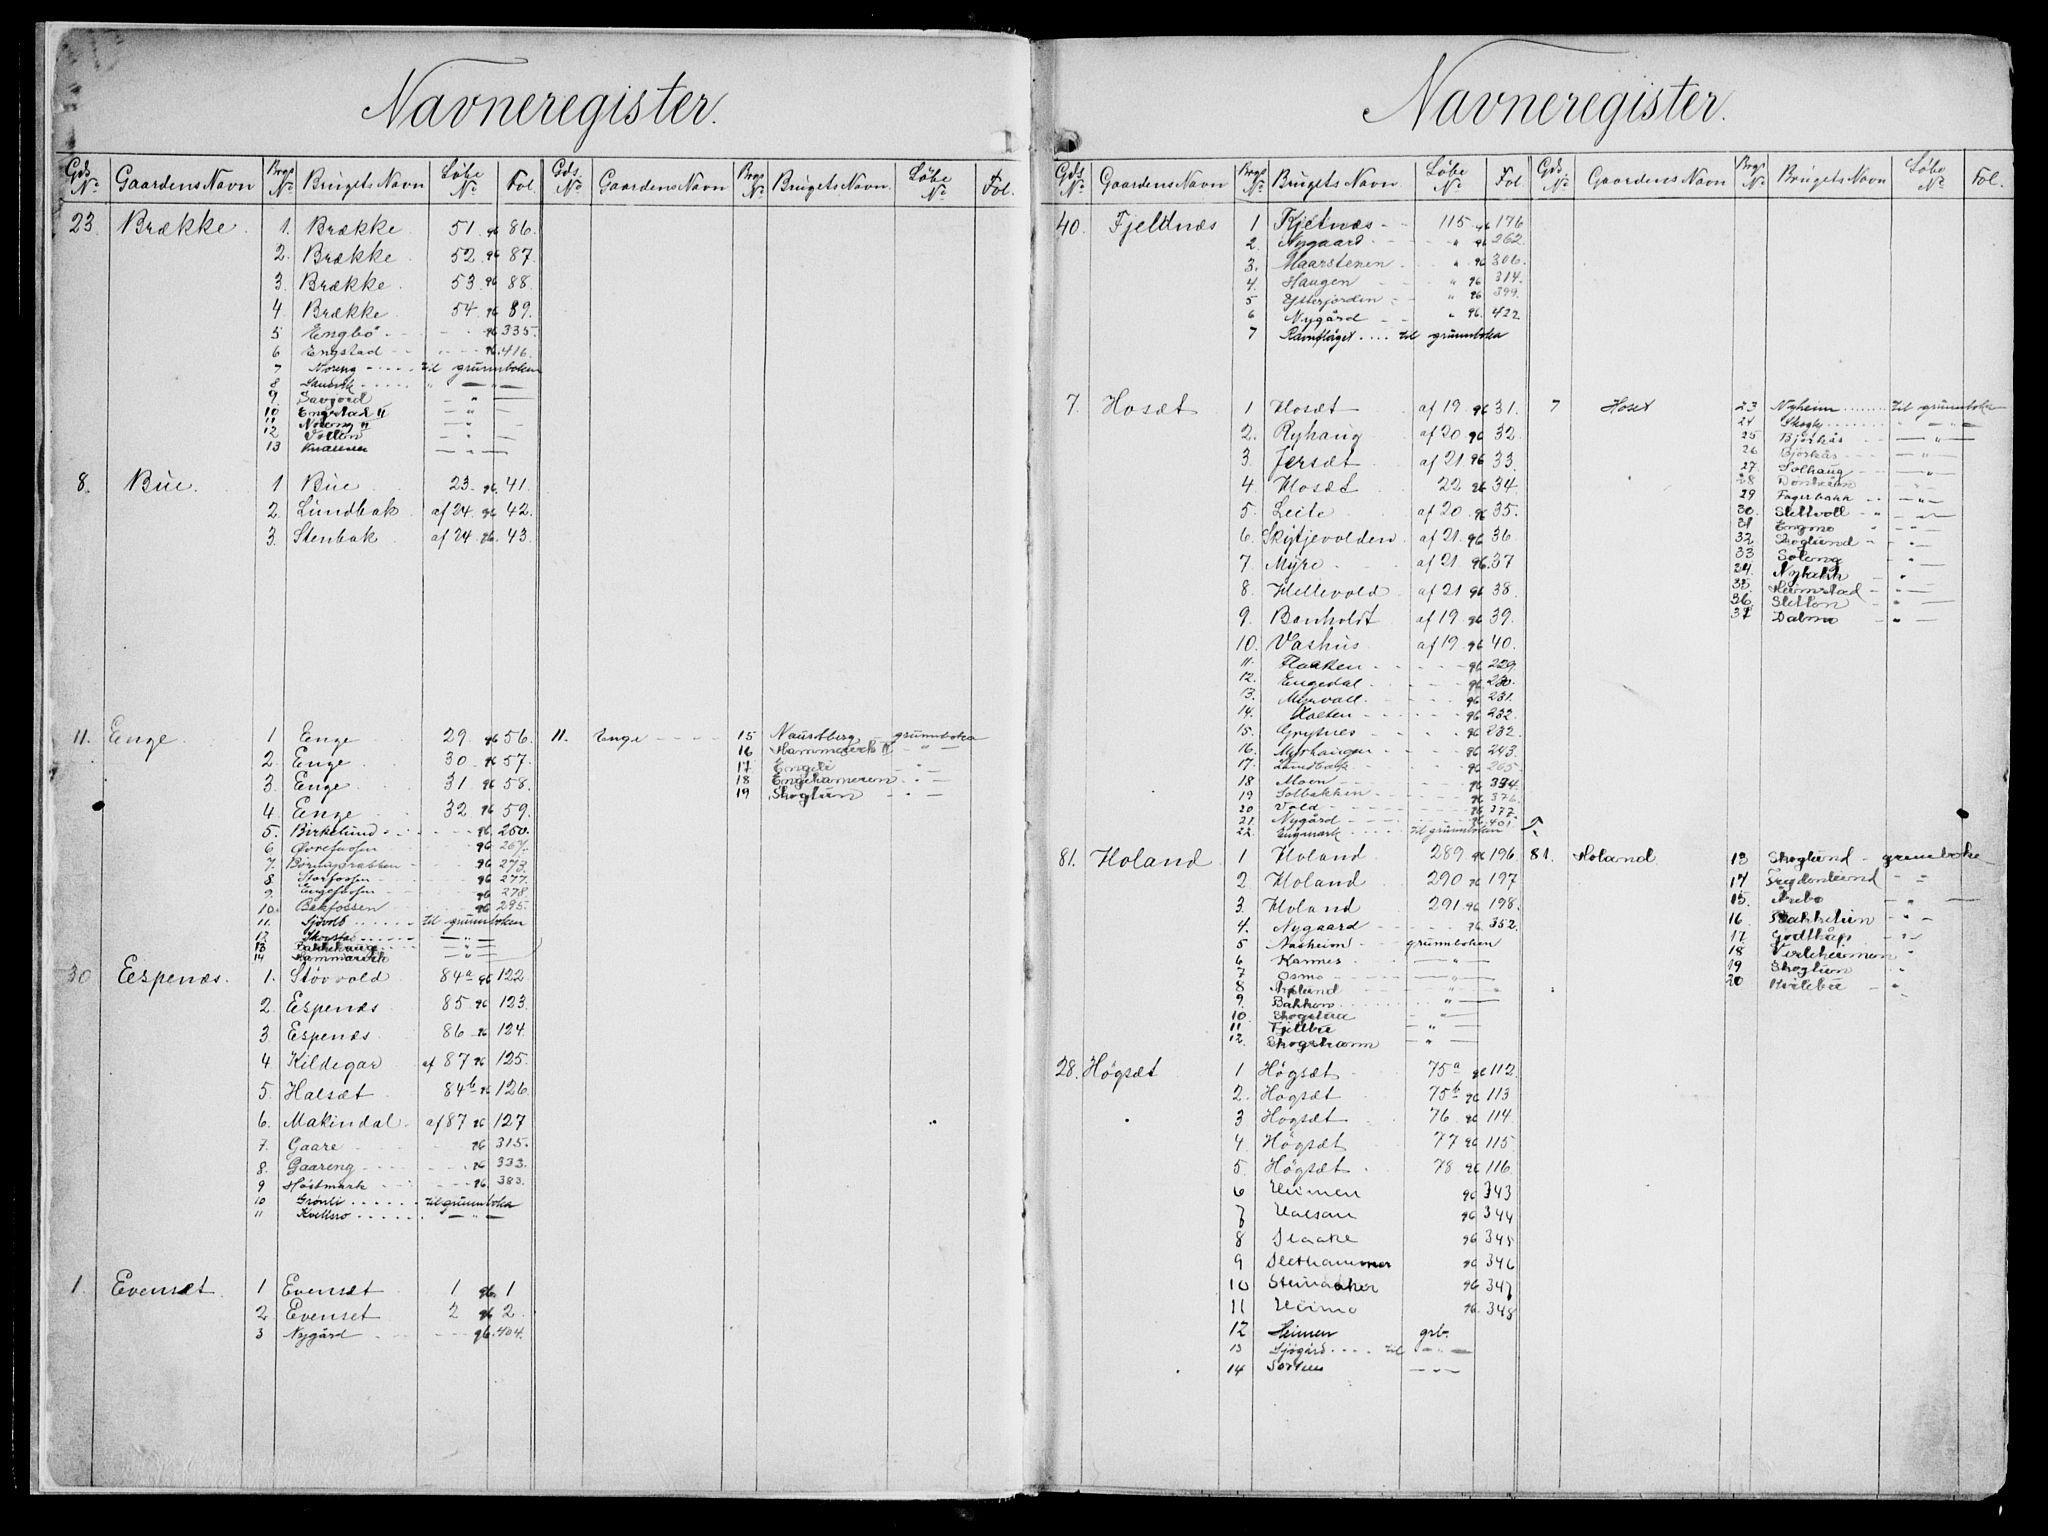 Navneregister.
Gds. № Gaardens Navn Brgs № Brugets Navn Løbe № Fol. Gds. № Gaardens Navn Brgs № Brugets Navn Løbe № Fol.
23. Brække. 1. Brække 51. 96 86.
2. Brække. 52. 96 87.
3. Brække. 53. 96 88.
4. Brække 54. 96 89.
5 Engbö 96 335.
6 Engstad 96. 416.
7 Noreng til grunnboken
8 Sandvik " — " —
9. " —
10 Engstad II — " —
11 Noreng II — "
12 Vollan — " —
13 — " —
8. Bue. 1 Bue 23. 96. 41.
2. Lundbak af 24. 96 42.
3. Stenbak af 24. 96. 43.
11. Enge. 1 Enge 29. 96 56. 11. Enge 15 Naustberg grunnboka
2. Enge. 30. 96 57. 16 Hammerek II — " —
3. Enge 31 96 58. 17 Engeli "
4. Enge 32 96 59. 18 Engehameren . " —
5. Birkelund 96. 250. 19 Skoglun — " —
6 Øvrefossen 96 267.
7. 96 273.
8. Storfossen 96 277.
9. Engefossen 96 278.
10. Bekfossen 96 295.
11. Sjövold til grunnboken
12 — " —
13 Bakkehaug — " —
14 — " —
30 Espenæs. 1. Støvvold 84a 96 122
2. Espenæs 85 96 123.
3. Espenæs 86 96 124.
4 Kildegar af 87 96 125.
5. Halsæt 84b 96 126.
6. Makindal af 87 96 127
7. Gaare 96 315.
8. Gaareng 96 333.
9 Høstmark 96. 383.
10 Grönli til grunnboka
11 Kvellsro — " —
1. Evensæt. 1 Evensæt 1 96. 1
2 Evenset 2 96 2.
3 Nygård 96. 404.
Navneregister.
Gds. № Gaardens Navn Brgs № Brugets Navn Løbe № Fol. Gds. № Gaardens Navn Brgs № Brugets Navn Løbe № Fol.
40. Fjeldnæs 1 Fjelnæs 115. 96 176
2. Nygaard " 96 262.
3. Maarstenen " 96 306.
4. Haugen " 96 314.
5 Efterjorden " 96 399.
6 Nygård " 96. 422
7 til grunnboka
7. Hosæt 1 Hosæt af 19 96 31. 7 Hoset 23 Nyheim til grunnboka
2. Ryhaug af 20 96 32. 24 Skogly " — " —
3. Jersæt af 21. 96 33. 25 Björkås — " —
4. Hosæt 22 96 34. 26 Björkås — " —
5. Leite af 20 96 35. 27. Solhaug — " —
6. Skytjevolden af 21. 96 36. 28
7. Myre af 21. 96. 37 29 Fagerbakk — " —
8. Hellevold af 21 96 38. 30. Slettvoll — " —
9. Banholdt af 19. 96 39. 31 Engmo — " —
10. Vashus af 19 96 40. 32 Skoglund — " —
11. Flaaten 96 229. 33 Soleng — " —
12. Engedal 96 230. 34. Nybekk "
13. Myrvoll 96 231. 35. Heimstad — " —
14. 96 232. 36. Sletton " —
15. Grytnes 96 232. 37 Dalmo — " —
16. Myrhaugen 96 243
17. Lundbæk 96 265.
18 Moen 96 334.
19 Solbakken 96 376.
20 Vold 96 377.
21. Nygård 96. 401.
22. Engmark til grunnboken
81. Holand. 1 Holand 289 96 196. 81. Holand. 13 Skoglund grunnboka
2 Holand 290 96 197 14 Frydenlund — " —
3. Holand 291 96 198. 15. " —
4. Nygaard 96. 352. 16 Bakketun " —
5 Aasheim grunnboken 17 Godthåp " —
6 Karnes — " — 18 Virkheimen "
7 Osmo — " — 19 Skoglun "
8 " 20 Kvilebu "
9. Bakkemo " —
10 Skogstua — " —
11 Fjellbu — " —
12. Skogshamn — " —
28. Högsæt 1 Högsæt 75a 96 112.
2. Högsæt 75b 96 113
3 Högsæt 76 96 114.
4. Högsæt 77 96 115.
5. Högsæt. 78 96 116.
6 Heimen 96 343
7 Halsan 96 344
8 Flaake 96 345
9 Slethammer 96 346
10 Steinaaker 96 347
11 Heimo 96. 348
12 Heimen grb.
13 Sjögård til — " —
14 — " —